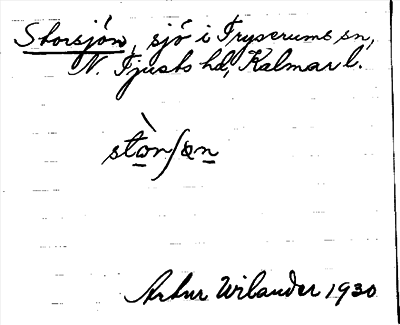 Storsjön, sjö i Tryserums sn,
N. Tjusts hd, Kalmar l.
stòrʃæn
Artur Wilander 1930